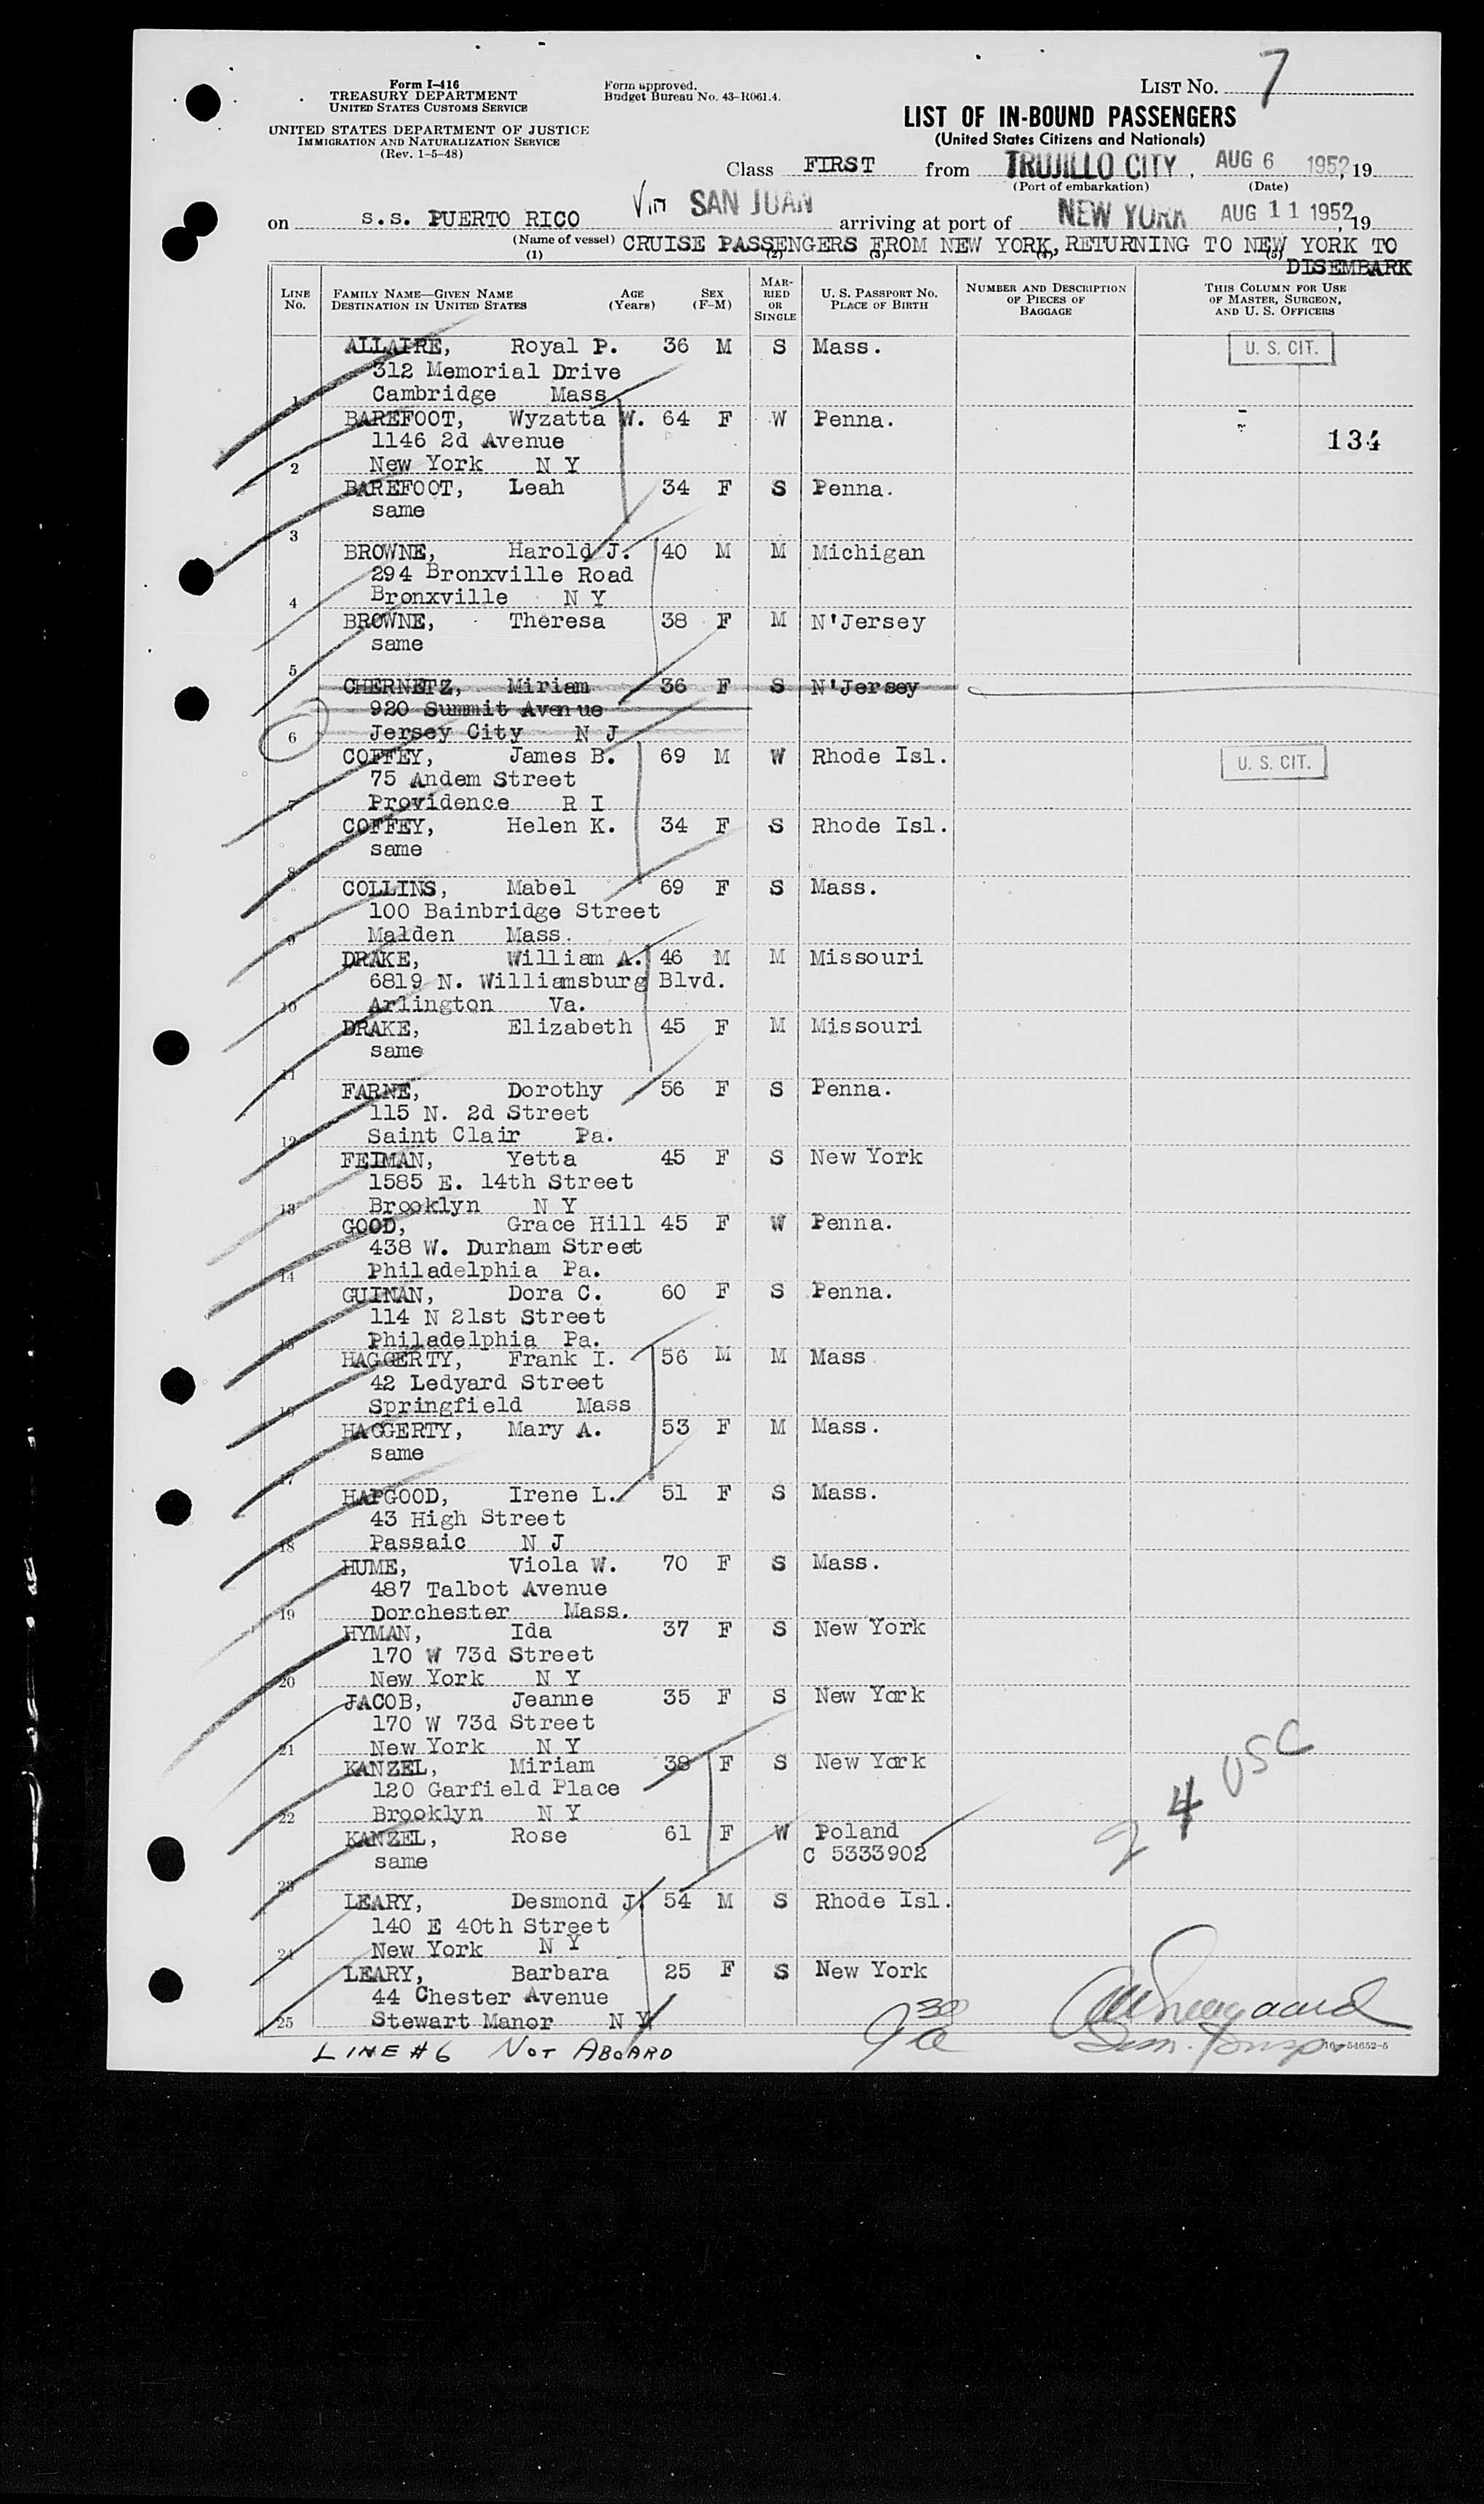 Form I-416
TREASURY DEPARTMENT
UNITED STATES CUSTOMS SERVICE
UNITED STATES DEPARTMENT OF JUSTICE
IMMIGRATION AND NATURALIZATION SERVICE
(Rev. 1-5-48)
Form approved.
Budget Bureau No. 43-R061.4.
LIST No. 7
LIST OF IN-BOUND PASSENGERS
(United States Citizens and Nationals)
Class FIRST from TRUJILLO CITY, AUG 6 1952, 19
(Port of embarkation) (Date)
on s.s. PUERTO RICO Via SAN JUAN arriving at port of NEW YORK AUG 11 1952, 19
(Name of vessel) CRUISE PASSENGERS FROM NEW YORK, RETURNING TO NEW YORK TO
(1) (2) (3) (4) (5)
DISEMBARK
LINE No. FAMILY NAME—GIVEN NAME DESTINATION IN UNITED STATES AGE (Years) SEX (F-M) MARRIED OR SINGLE U. S. PASSPORT No. PLACE OF BIRTH NUMBER AND DESCRIPTION OF PIECES OF BAGGAGE THIS COLUMN FOR USE OF MASTER, SURGEON, AND U. S. OFFICERS
ALLAIRE, Royal P. 36 M S Mass. U. S. CIT.
312 Memorial Drive
1 Cambridge Mass
BAREFOOT, Wyzatta W. 64 F W Penna.
1146 2d Avenue 134
2 New York N Y
BAREFOOT, Leah 34 F S Penna.
same
3
BROWNE, Harold J. 40 M M Michigan
294 Bronxville Road
4 Bronxville N Y
BROWNE, Theresa 38 F M N'Jersey
same
5
CHERNETZ, Miriam 36 F S N'Jersey
920 Summit Avenue
6 Jersey City N J
COFFEY, James B. 69 M W Rhode Isl. U. S. CIT.
75 Andem Street
7 Providence R I
COFFEY, Helen K. 34 F S Rhode Isl.
same
8
COLLINS, Mabel 69 F S Mass.
100 Bainbridge Street
9 Malden Mass.
DRAKE, William A. 46 M M Missouri
6819 N. Williamsburg Blvd.
10 Arlington Va.
DRAKE, Elizabeth 45 F M Missouri
same
11
FARNE, Dorothy 56 F S Penna.
115 N. 2d Street
12 Saint Clair Pa.
FEIMAN, Yetta 45 F S New York
1585 E. 14th Street
13 Brooklyn N Y
GOOD, Grace Hill 45 F W Penna.
438 W. Durham Street
14 Philadelphia Pa.
GUINAN, Dora C. 60 F S Penna.
114 N 21st Street
15 Philadelphia Pa.
HAGGERTY, Frank I. 56 M M Mass
42 Ledyard Street
16 Springfield Mass
HAGGERTY, Mary A. 53 F M Mass.
same
17
HAPGOOD, Irene L. 51 F S Mass.
43 High Street
18 Passaic N J
HUME, Viola W. 70 F S Mass.
487 Talbot Avenue
19 Dorchester Mass.
HYMAN, Ida 37 F S New York
170 W 73d Street
20 New York N Y
JACOB, Jeanne 35 F S New York
170 W 73d Street
21 New York N Y
KANZEL, Miriam 38 F S New York
120 Garfield Place
22 Brooklyn N Y
KANZEL, Rose 61 F W Poland
same C 5333902
23
2 4 USC
LEARY, Desmond J. 54 M S Rhode Isl.
140 E 40th Street
24 New York N Y
LEARY, Barbara 25 F S New York
44 Chester Avenue
25 Stewart Manor N Y
LINE #6 NOT ABOARD
16-54652-5